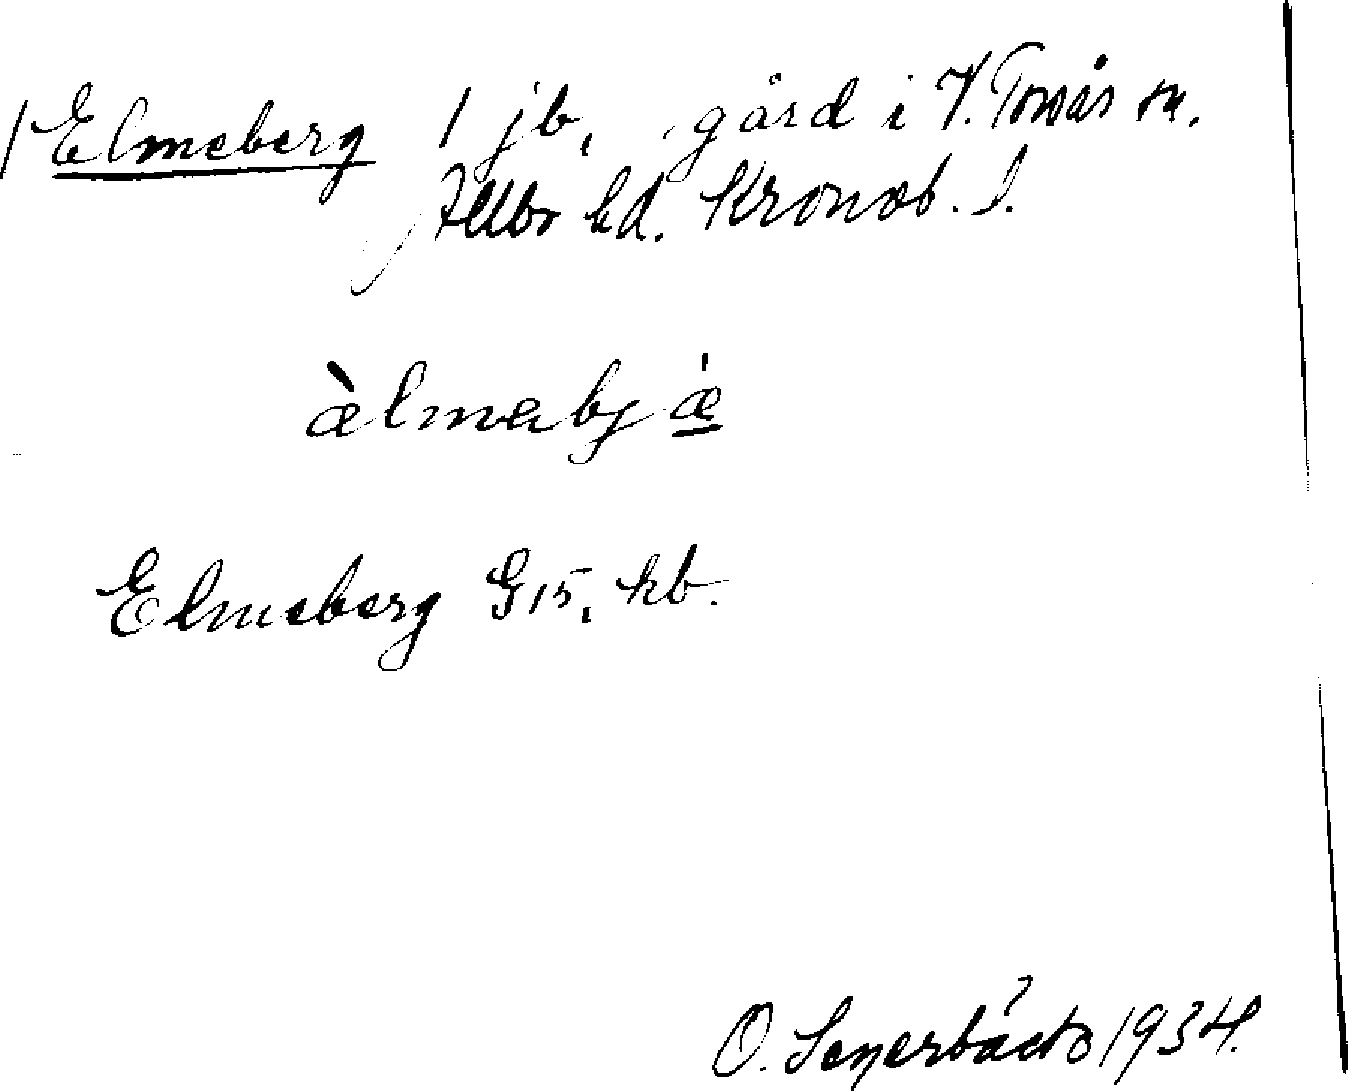 Elmeberg 1 jb, gård i V. Torsås sn.
Allbo hd. Kronob. l.
àlmabjæ̀
Elmeberg G15, kb.
O. 1934.